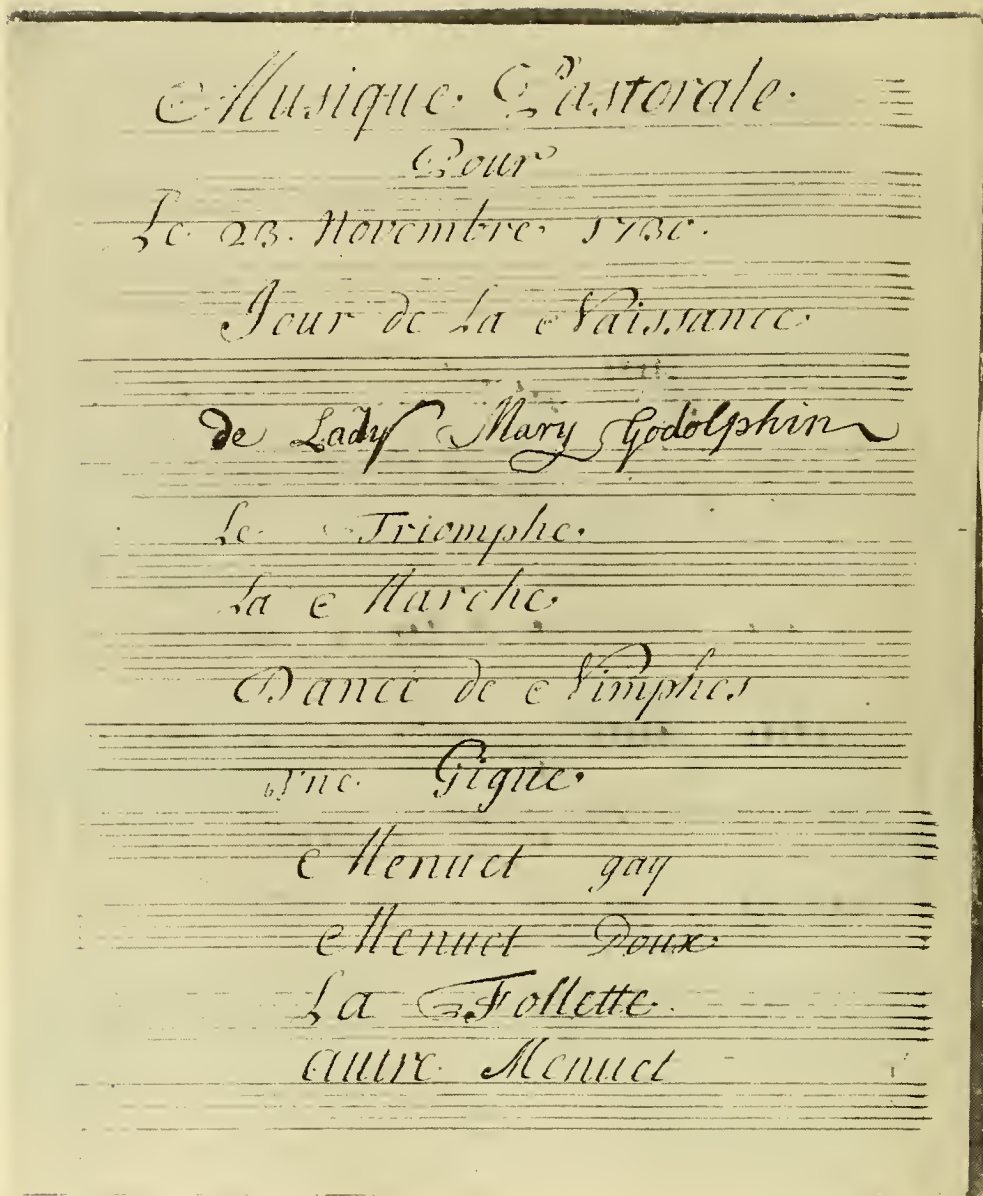 Musique Pastorale.
Pour
Le 23. Novembre 1730.
Jour de La Naissance
de Lady Mary Godolphin
Le Triomphe.
La Marche
Dance de Nimphes
Vne Gigue.
Menuet gay
Menuet Doux
La Follette.
autre Menuet